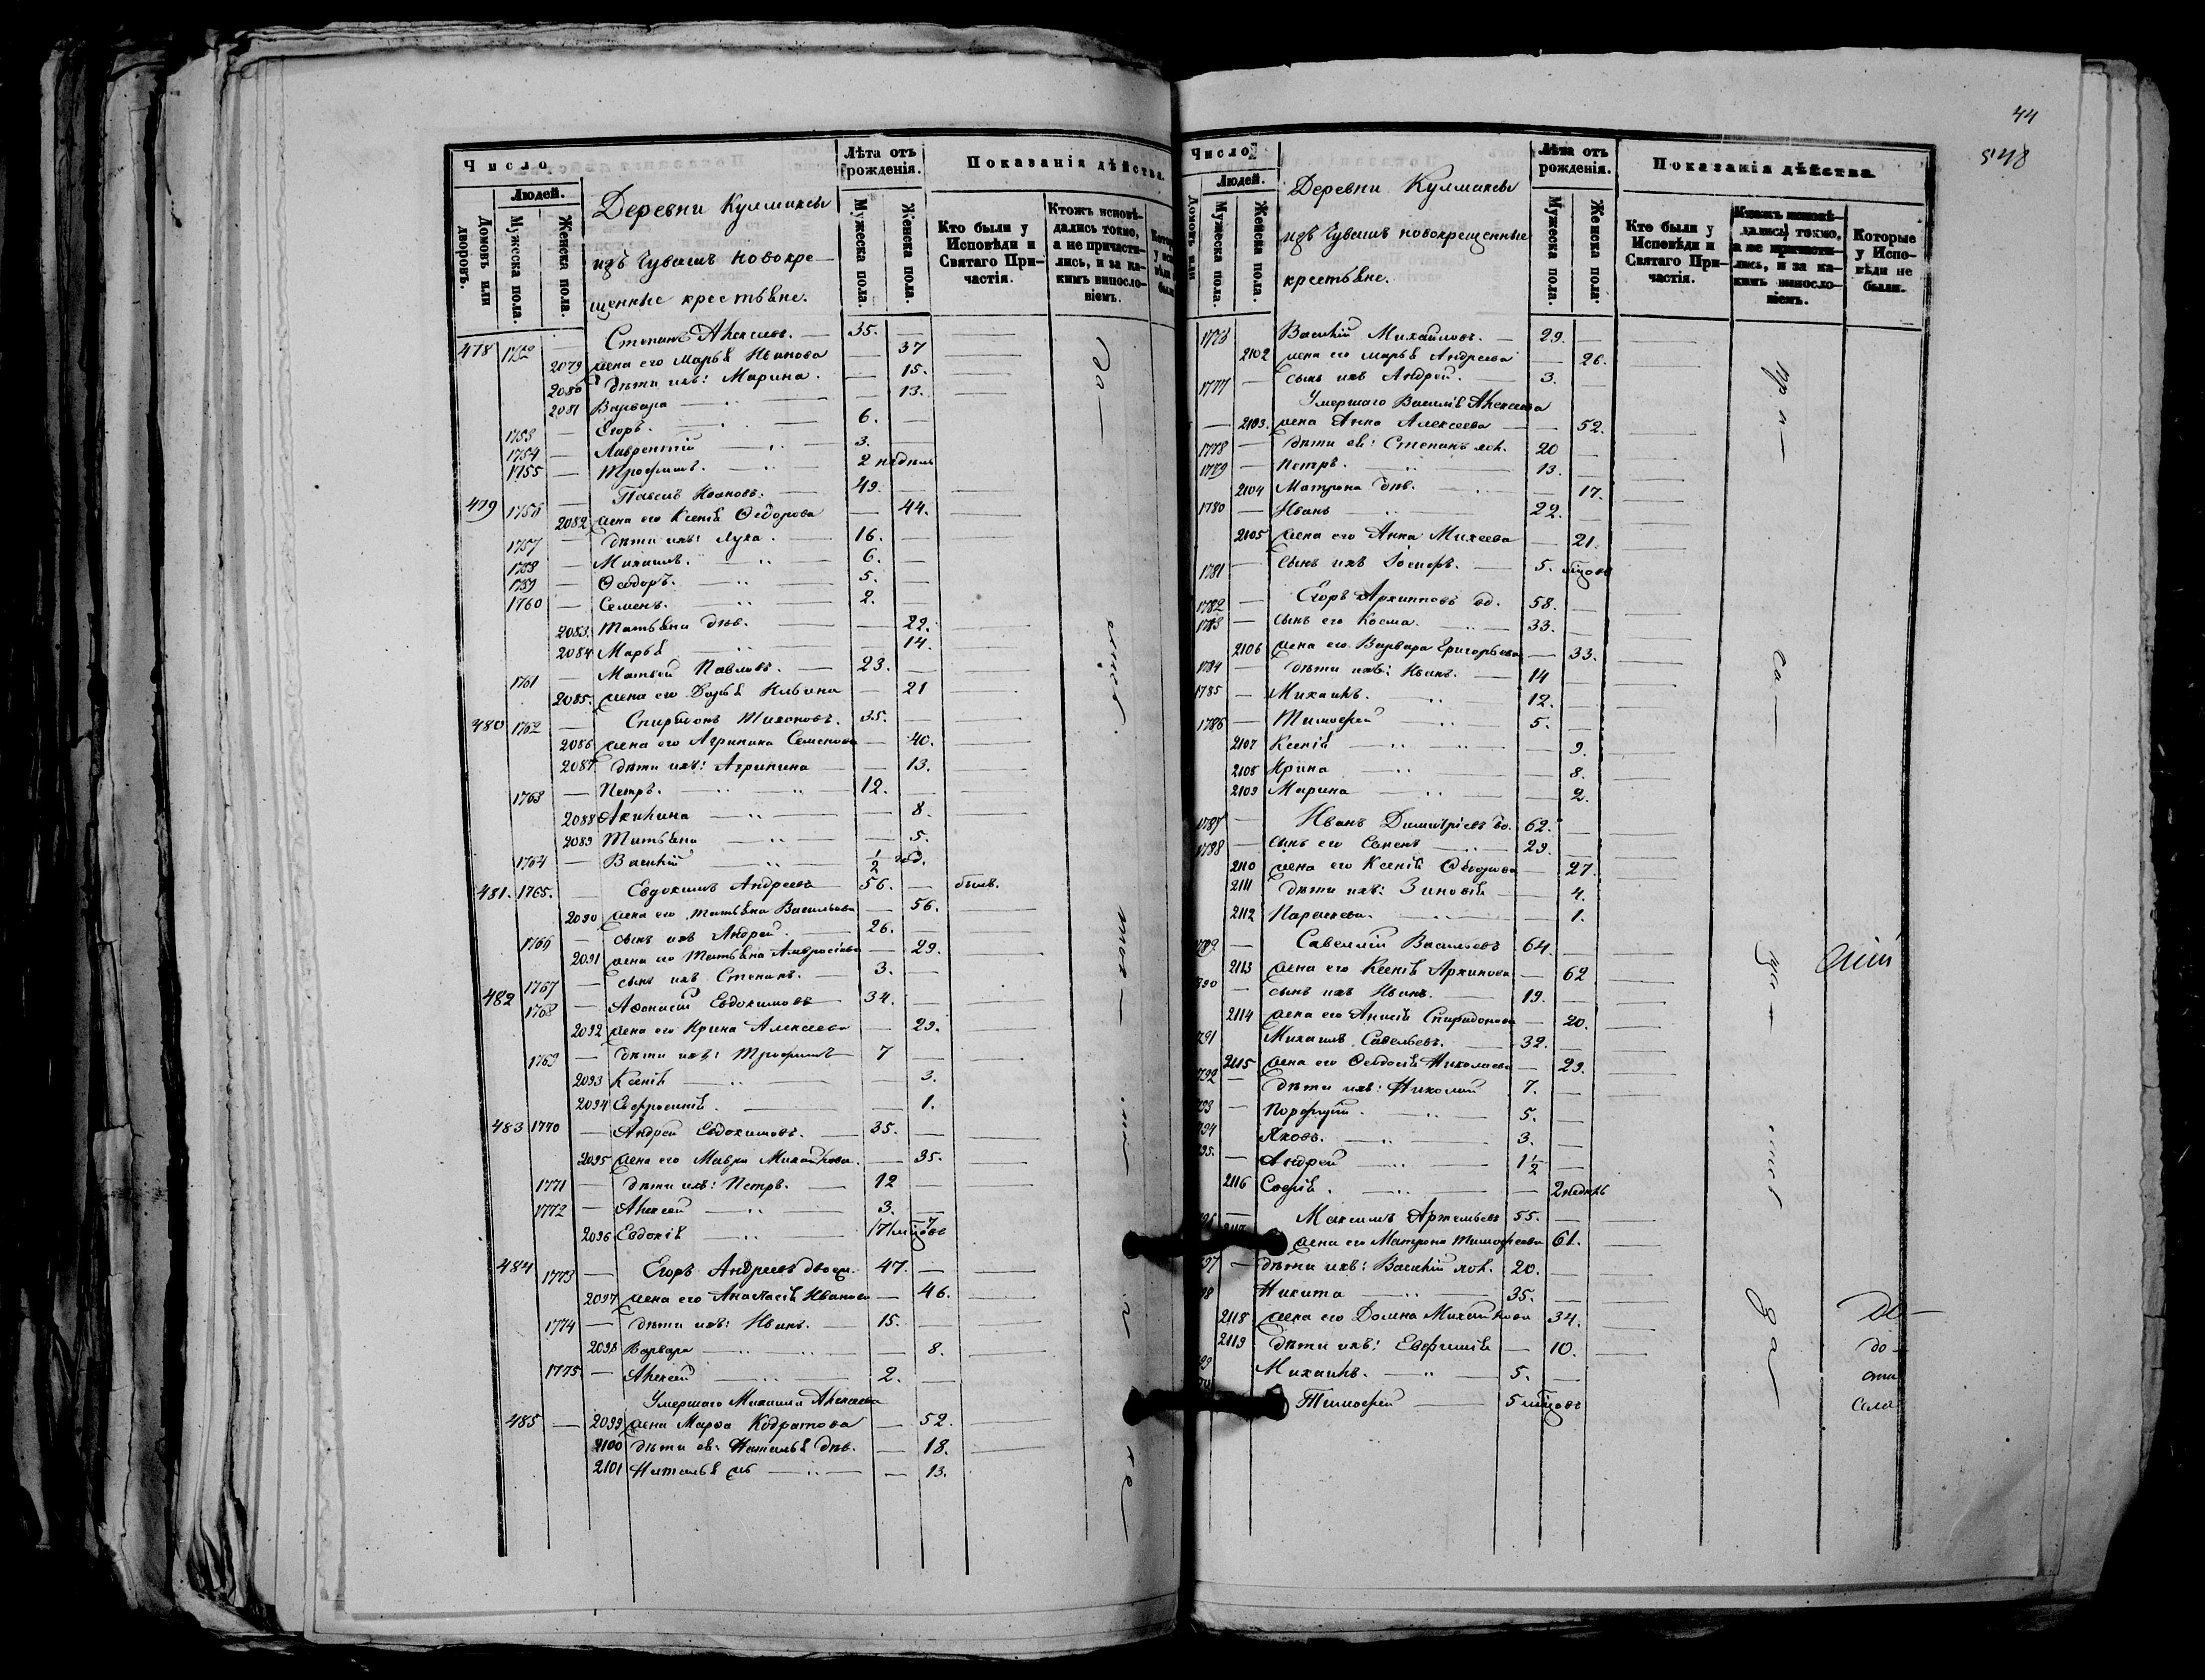 Число
Людей.
Домовъ или дворовъ.
Мужеска пола.
Женска пола.
Деревни Кулмаксы
изъ Чувашъ новокре-
щенные крестьяне.
Лѣта отъ рожденія.
Мужеска пола.
Женска пола.
Показанія дѣйства.
Кто были у Исповѣди и Святаго При-частія.
Ктожъ исповѣ-дались токмо, а не причасти-лись, и за ка-кимъ виносло-віемъ.
478 1752 — Степанъ Алексѣевъ. — 35. —
2079 жена его Марья Иванова — 37
2080 дѣти ихъ: Марина. — 15.
2081 Варвара — 13.
1753 — Егоръ. — 6. —
1754 — Лаврентій — 3.
1755 — Трофимъ. — 2 недѣль
479 1756 — Павелъ Ивановъ. — 49. —
2082 жена его Ксенія Ѳедорова — 44.
1757 — дѣти ихъ: Лука. — 16. —
1758 — Михаилъ. — 6. —
1759 — Ѳеодоръ. — 5. —
1760 — Семенъ. — 2. —
2083. Татьяна дѣв. — 22.
2084 Марья — 14.
1761 — Матвей Павловъ. — 23. —
2085. жена его Дарья Ильина — 21
480 1762 — Спиридонъ Тихоновъ. 35. —
2086 жена его Агрипина Семенова — 40.
2087. дѣти ихъ: Агрипина — 13.
1763 — Петръ. — 12. —
2088 Акилина — 8.
2089 Татьяна — 5.
1764 — Василій — 1/2 год.
481. 1765. — Евдокимъ Андреевъ — 56. — былъ.
2090 жена его Татьяна Васильева — 56.
1766 — сынъ ихъ Андрей. — 26. —
2091 жена его Татьяна Амвросіева — 29.
1767 — сынъ ихъ Степанъ. — 3. —
482 1768 — Аѳонасій Евдокимовъ — 34. —
2092 жена его Ирина Алексеева — 29.
1769 — дѣти ихъ: Трофимъ — 7 —
2093 Ксенія — 3.
2094 Евфросинія. — 1.
483 1770 — Андрей Евдокимовъ. — 35. —
2095 жена его Мавра Михайлова. — 35.
1771 — дѣти ихъ: Петръ. — 12 —
1772 — Алексей — 3. —
2096 Евдокія — 7 мѣсцовъ
484 1773 — Егоръ Андреевъ двоеж. 47. —
2097 жена его Анастасія Иванова — 46.
1774 — дѣти ихъ: Иванъ. — 15. —
2098 Варвара — 8.
1775 — Алексей — 2. —
Умершаго Михаила Алексеева
485 — 2099 жена Марѳа Кодратова — 52.
2100 дѣти ея: Наталья дѣв. — 18.
2101 Наталья — 13.
44
Число
Людей.
Домовъ или
Мужеска пола.
Женска пола.
Деревни Кулмаксы
изъ Чувашъ новокрещенные
крестьяне.
Лѣта отъ рожденія.
Мужеска пола.
Женска пола.
Показанія дѣйства.
Кто были у Исповѣди и Святаго При-частія.
Ктожъ исповѣ-дались токмо, а не причасти-лись, и за ка-кимъ виносло-віемъ.
Которые у Испо-вѣди не были.
1776 Василій Михайловъ. — 29. —
2102 жена его Марья Андреева — 26.
1777 — сынъ ихъ Андрей. — 3. —
Умершаго Василія Алексеева
— 2103. жена Анна Алексеева — 52.
1778 — дѣти ея: Степанъ хол. 20 —
1779 — Петръ. — 13. —
2104 Матрона дѣв. — 17.
1780 — Иванъ — 22. —
2105 жена его Анна Михеева — 21.
1781 — Сынъ ихъ — 5. мѣсцовъ
1782 — Егоръ Архиповъ вд. 58. —
1783 — сынъ его Косма. — 33. —
2106 жена его Варвара Григорьева — 33.
1784 — дѣти ихъ: Иванъ. — 14 —
1785 — Михаилъ. — 12. —
1786 — Тимофей — 5. —
2107 Ксенія — 9.
2108 Ирина — 8.
2109 Марина — 2.
1787 — Иванъ Димитріевъ вд. 62. —
1788 — сынъ его Семенъ — 29. —
2110 жена его Ксенія Ѳеодорова — 27.
2111 дѣти ихъ: Зиновія — 4.
2112 Параскева. — 1.
1789 — Савеллій Васильевъ 64. —
2113 жена его Ксенія Архипова — 62
790 — сынъ ихъ Иванъ. — 19. —
2114 жена его Анисія Спиридонова — 20.
791 Михаилъ Савельевъ. — 32. —
2115 жена его Ѳеодосія Николаева — 29.
792 — дѣти ихъ: Николай 7. —
793 — Порфирій. — 5. —
794 Яковъ. — 3. —
795. — Андрей — 1 1/2 —
2116 Софія. — 2 недѣль
— Максимъ Артемьевъ 55. —
жена его Матрона Тимофеева 61.
97 — дѣти ихъ: Василій хол. 20. —
98 Никита — 35. —
2118 жена его Домна Михайлова 34.
2119 дѣти ихъ: Евфимія — 10.
99 Михаилъ. — 5. —
Тимофей — 5 мѣсцовъ